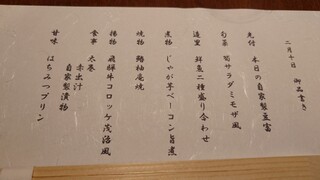 二月十日 御品書き
先付 本日の自家製豆富
旬菜 菊サラダミモザ風
造里 鮮魚二種盛り合わせ
煮物 じゃが芋ベーコン旨煮
焼物 鰆柚庵焼
揚物 飛騨牛コロッケ茂治風
食事 太巻
自家製漬物
赤出汁
甘味 はちみつプリン